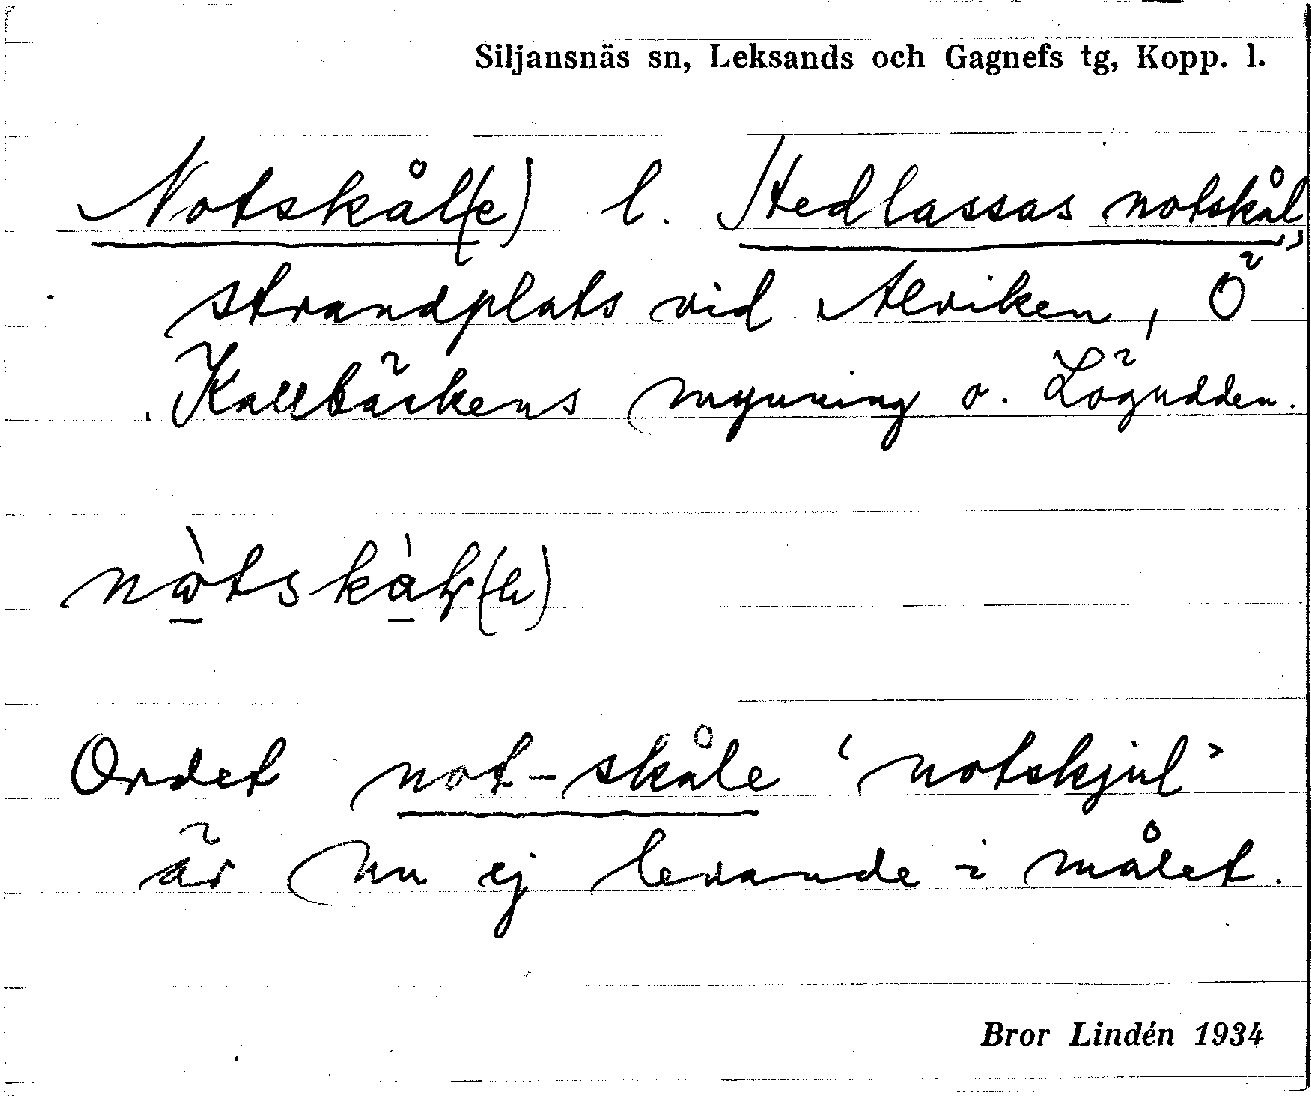 Siljansnäs sn, Leksands och Gagnefs tg, Kopp. l.
Notskål(e) l. Hedlassas notskål,
strandplats vid Alviken, Ö
Kallbäckens mynning o. Lögudden.
Ordet not-skåle 'notskjul'
är nu ej levande i målet.
Bror Lindén 1934